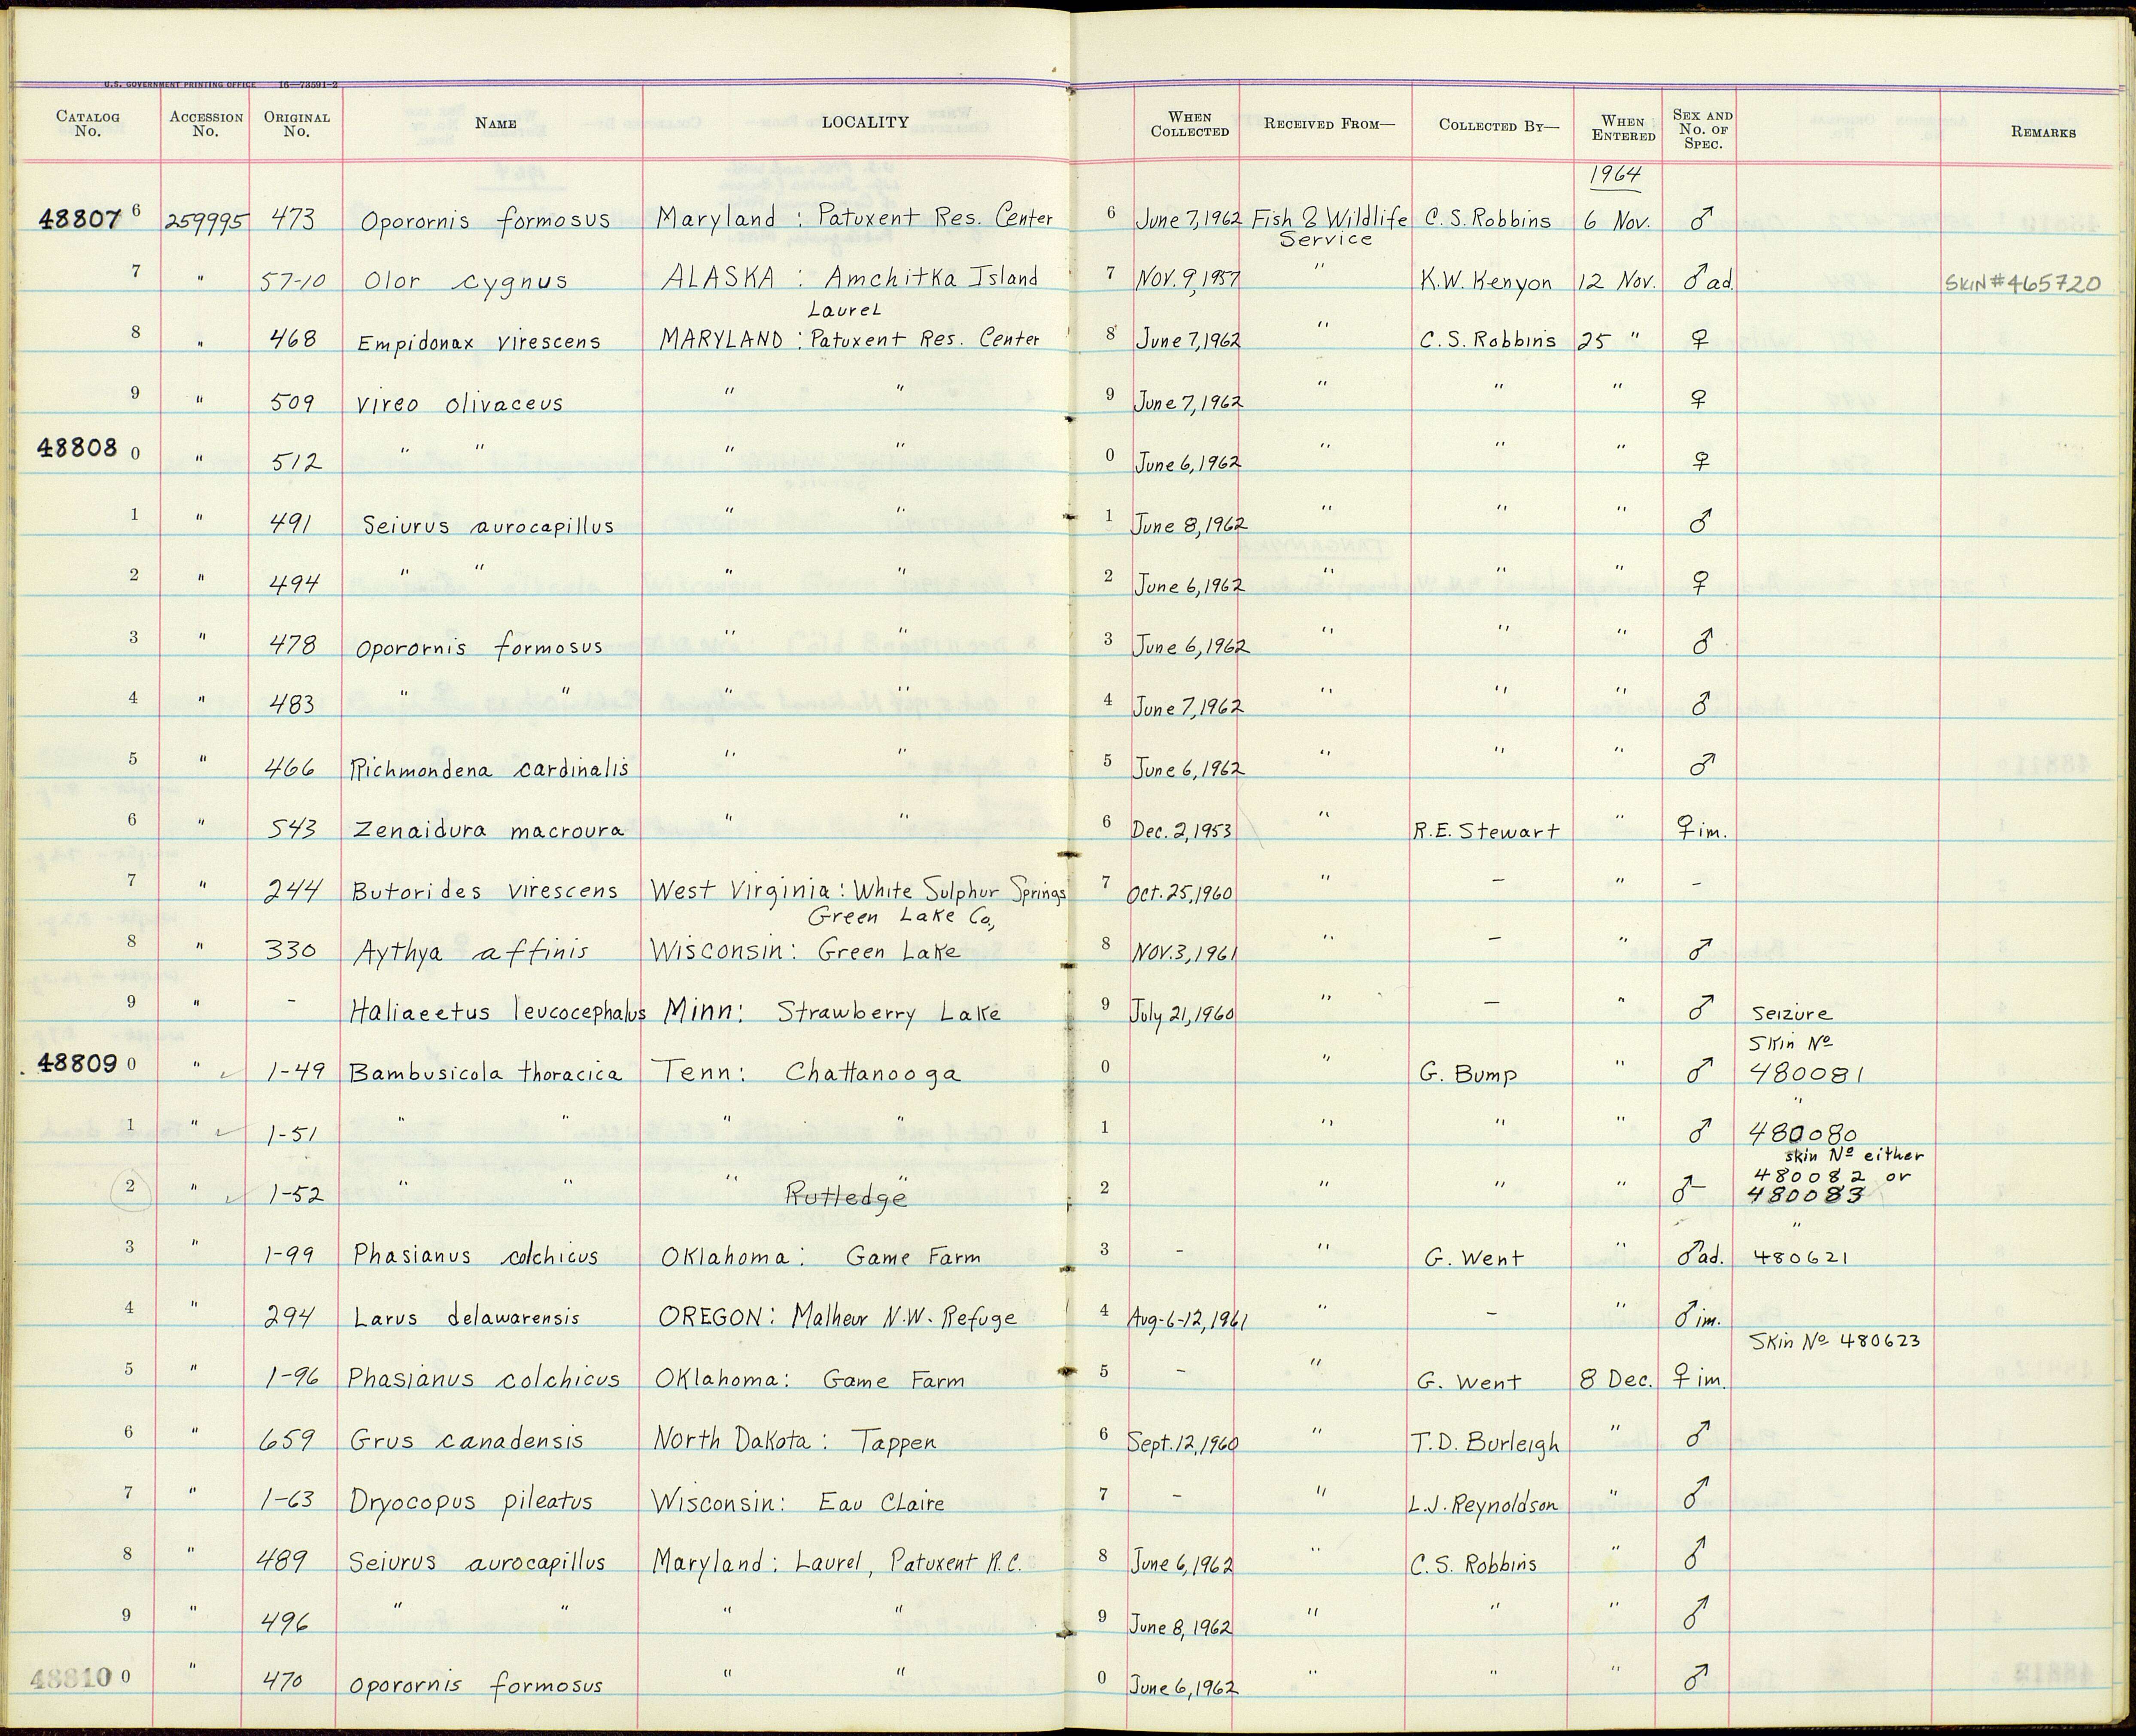 U.S. GOVERNMENT PRINTING OFFICE 16—73591-2
CATALOG No. ACCESSION No. ORIGINAL No. NAME LOCALITY WHEN COLLECTED RECEIVED FROM— COLLECTED BY— WHEN ENTERED SEX AND No. OF SPEC. REMARKS
1964
48807 6 259995 473 Oporornis formosus Maryland : Patuxent Res. Center 6 June 7, 1962 Fish & Wildlife Service C. S. Robbins 6 Nov. ♂
7 " 57-10 Olor cygnus ALASKA : Amchitka Island 7 Nov. 9, 1957 " K.W. Kenyon 12 Nov. ♂ ad. SKIN #465720
Laurel
8 " 468 Empidonax virescens MARYLAND : Patuxent Res. Center 8 June 7, 1962 " C. S. Robbins 25 " ♀
9 " 509 Vireo olivaceus " " 9 June 7, 1962 " " " ♀
48808 0 " 512 " " " " 0 June 6, 1962 " " " ♀
1 " 491 Seiurus aurocapillus " " 1 June 8, 1962 " " " ♂
2 " 494 " " " " 2 June 6, 1962 " " " ♀
3 " 478 Oporornis formosus " " 3 June 6, 1962 " " " ♂
4 " 483 " " " " 4 June 7, 1962 " " " ♂
5 " 466 Richmondena cardinalis " " 5 June 6, 1962 " " " ♂
6 " 543 Zenaidura macroura " " 6 Dec. 2, 1953 " R.E. Stewart " ♀ im.
7 " 244 Butorides virescens West Virginia : White Sulphur Springs 7 Oct. 25, 1960 " – " –
Green Lake Co,
8 " 330 Aythya affinis Wisconsin: Green Lake 8 Nov. 3, 1961 " – " ♂
9 " – Haliaeetus leucocephalus Minn: Strawberry Lake 9 July 21, 1960 " – " ♂ Seizure
Skin No
48809 0 " ✓ 1-49 Bambusicola thoracica Tenn: Chattanooga 0 " G. Bump " ♂ 480081
"
1 " ✓ 1-51 " " " " 1 " " " ♂ 480080
skin No either
2 " ✓ 1-52 " " " " Rutledge 2 " " " ♂ 480082 or
480083
"
3 " 1-99 Phasianus colchicus Oklahoma: Game Farm 3 – " G. Went " ♂ ad. 480621
4 " 294 Larus delawarensis OREGON: Malheur N.W. Refuge 4 Aug-6-12, 1961 " – " ♂ im.
Skin No 480623
5 " 1-96 Phasianus colchicus Oklahoma: Game Farm 5 – " G. Went 8 Dec. ♀ im.
6 " 659 Grus canadensis North Dakota : Tappen 6 Sept. 12, 1960 " T.D. Burleigh " ♂
7 " 1-63 Dryocopus pileatus Wisconsin: Eau Claire 7 – " L.J. Reynoldson " ♂
8 " 489 Seiurus aurocapillus Maryland : Laurel, Patuxent R.C. 8 June 6, 1962 " C. S. Robbins " ♂
9 " 496 " " " " 9 June 8, 1962 " " " ♂
48810 0 " 470 Oporornis formosus " " 0 June 6, 1962 " " " ♂